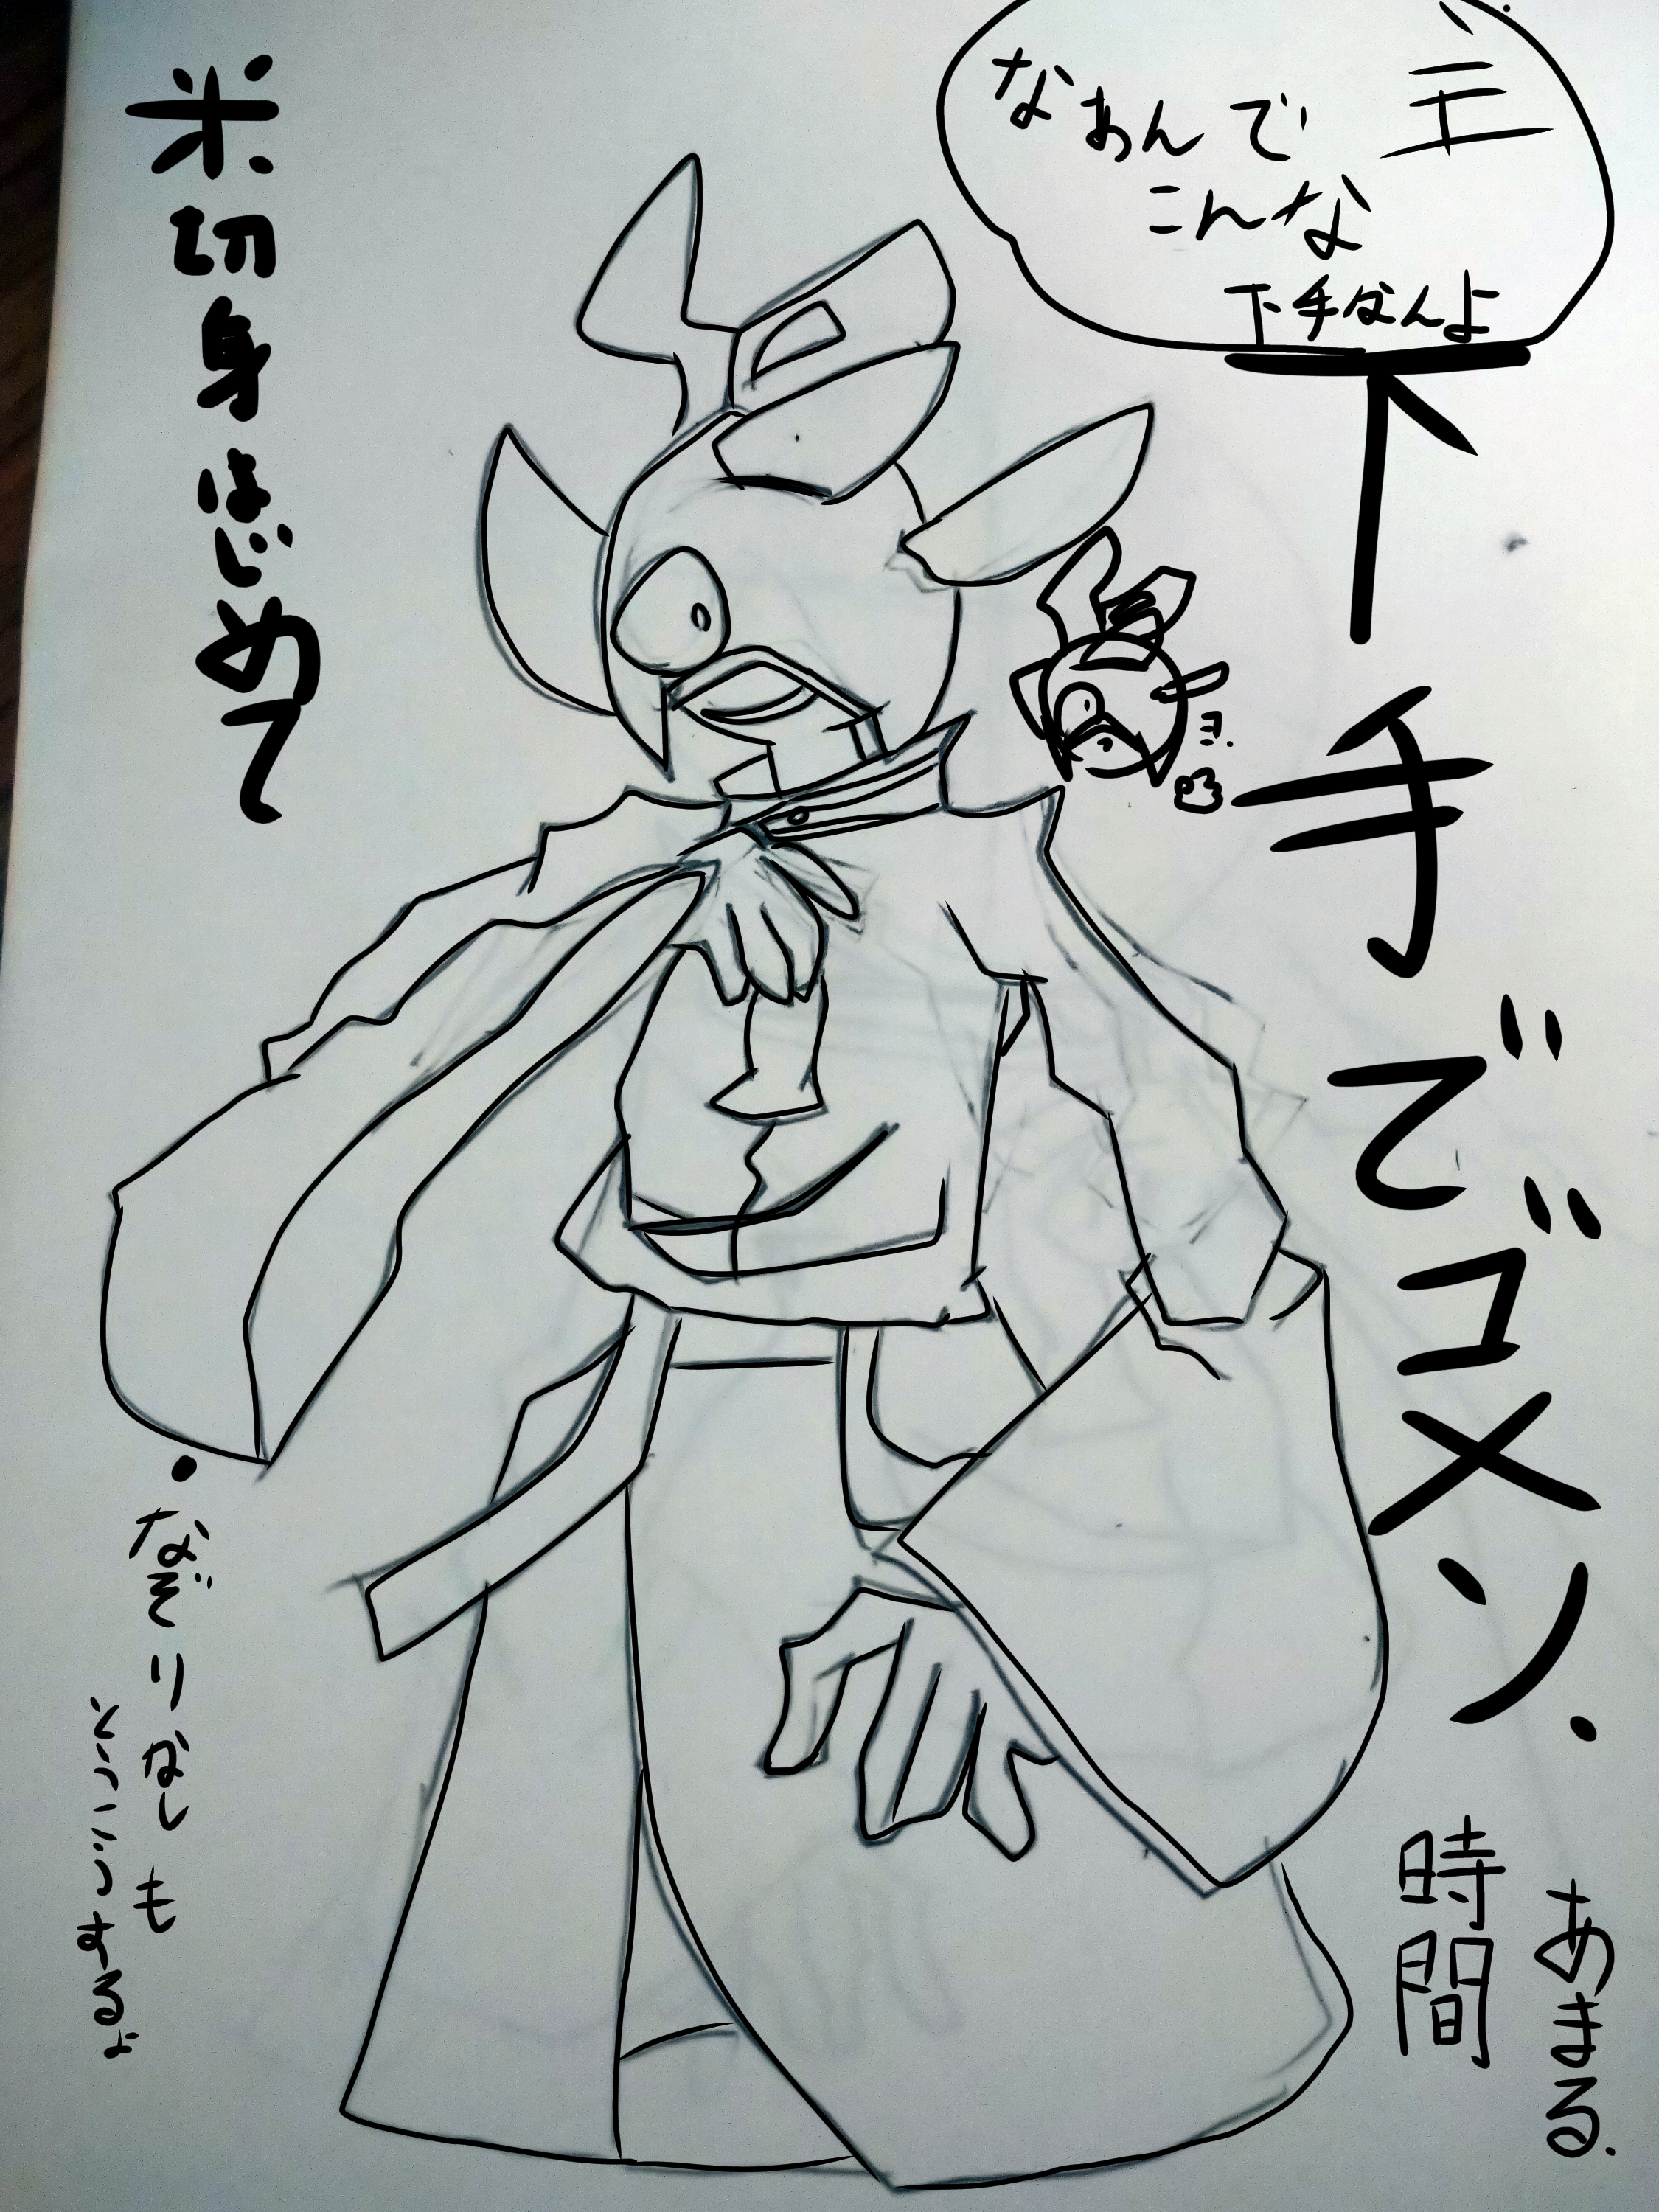 主
なあんで
こんな
下手なんよ
下手でゴメン.
米切身はじめて
ヨ.
・なぞりなしも
とうこうするよ
あまる.
時間